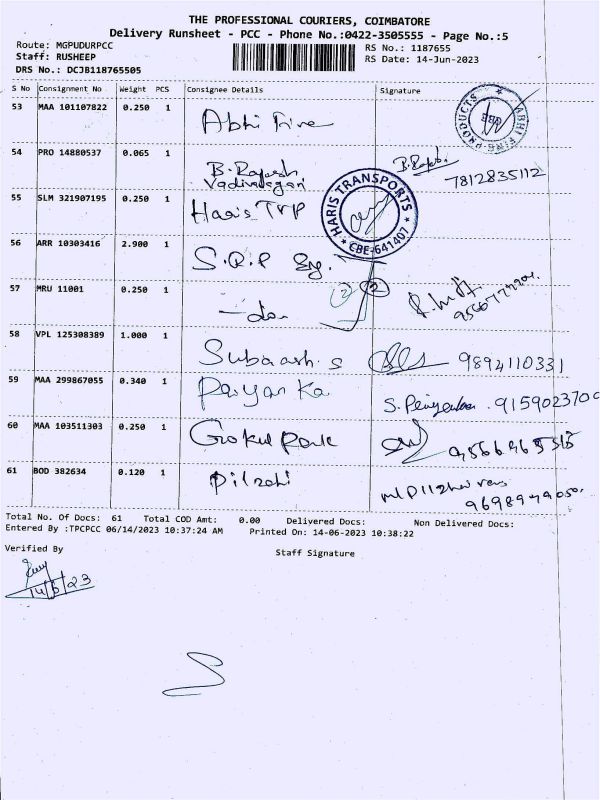 THE PROFESSIONAL COURIERS, COIMBATORE
Delivery Runsheet - PCC - Phone No.:0422-3505555 - Page No.:5
Route: MGPUDURPCC
RS No.: 1187655
Staff: RUSHEEP
RS Date: 14-Jun-2023
DRS No.: DCJB118765505
S No Consignment No Weight PCS Consignee Details Signature
53 MAA 101107822 0.250 1 Abhi Fine
ABHI FINE PRODUCTS
CBE
54 PRO 14880537 0.065 1 B. Rajesh
Vadivelagan
7812835112
55 SLM 321907195 0.250 1 Haris TVP
HARIS TRANSPORTS
CBE-641407
56 ARR 10303416 2.900 1 S.R.P
57 MRU 11001 0.250 1 - do -
2 2
58 VPL 125308389 1.000 1 Subaash. s 9894110331
59 MAA 299867055 0.340 1 S. 9159023700
60 MAA 103511303 0.250 1 Gokul
61 BOD 382634 0.120 1
Total No. Of Docs: 61 Total COD Amt: 0.00 Delivered Docs: Non Delivered Docs:
Entered By :TPCPCC 06/14/2023 10:37:24 AM Printed On: 14-06-2023 10:38:22
Verified By
Staff Signature
14/6/23